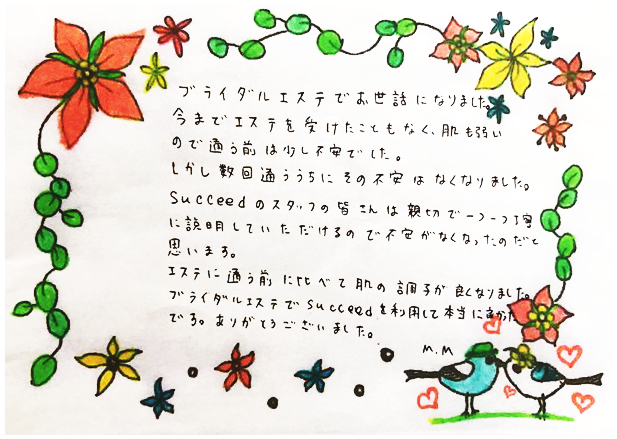 ブライダルエステでお世話になりました。
今までエステを受けたこともなく、肌も弱い
ので通う前は少し不安でした。
しかし数回通ううちにその不安はなくなりました。
Succeedのスタッフの皆さんは親切で一つ一つ丁寧
に説明していただけるので不安がなくなったのだと
思います。
エステに通う前に比べて肌の調子が良くなりました。
ブライダルエステでSucceedを利用して本当に良かった
です。ありがとうございました。
M.M